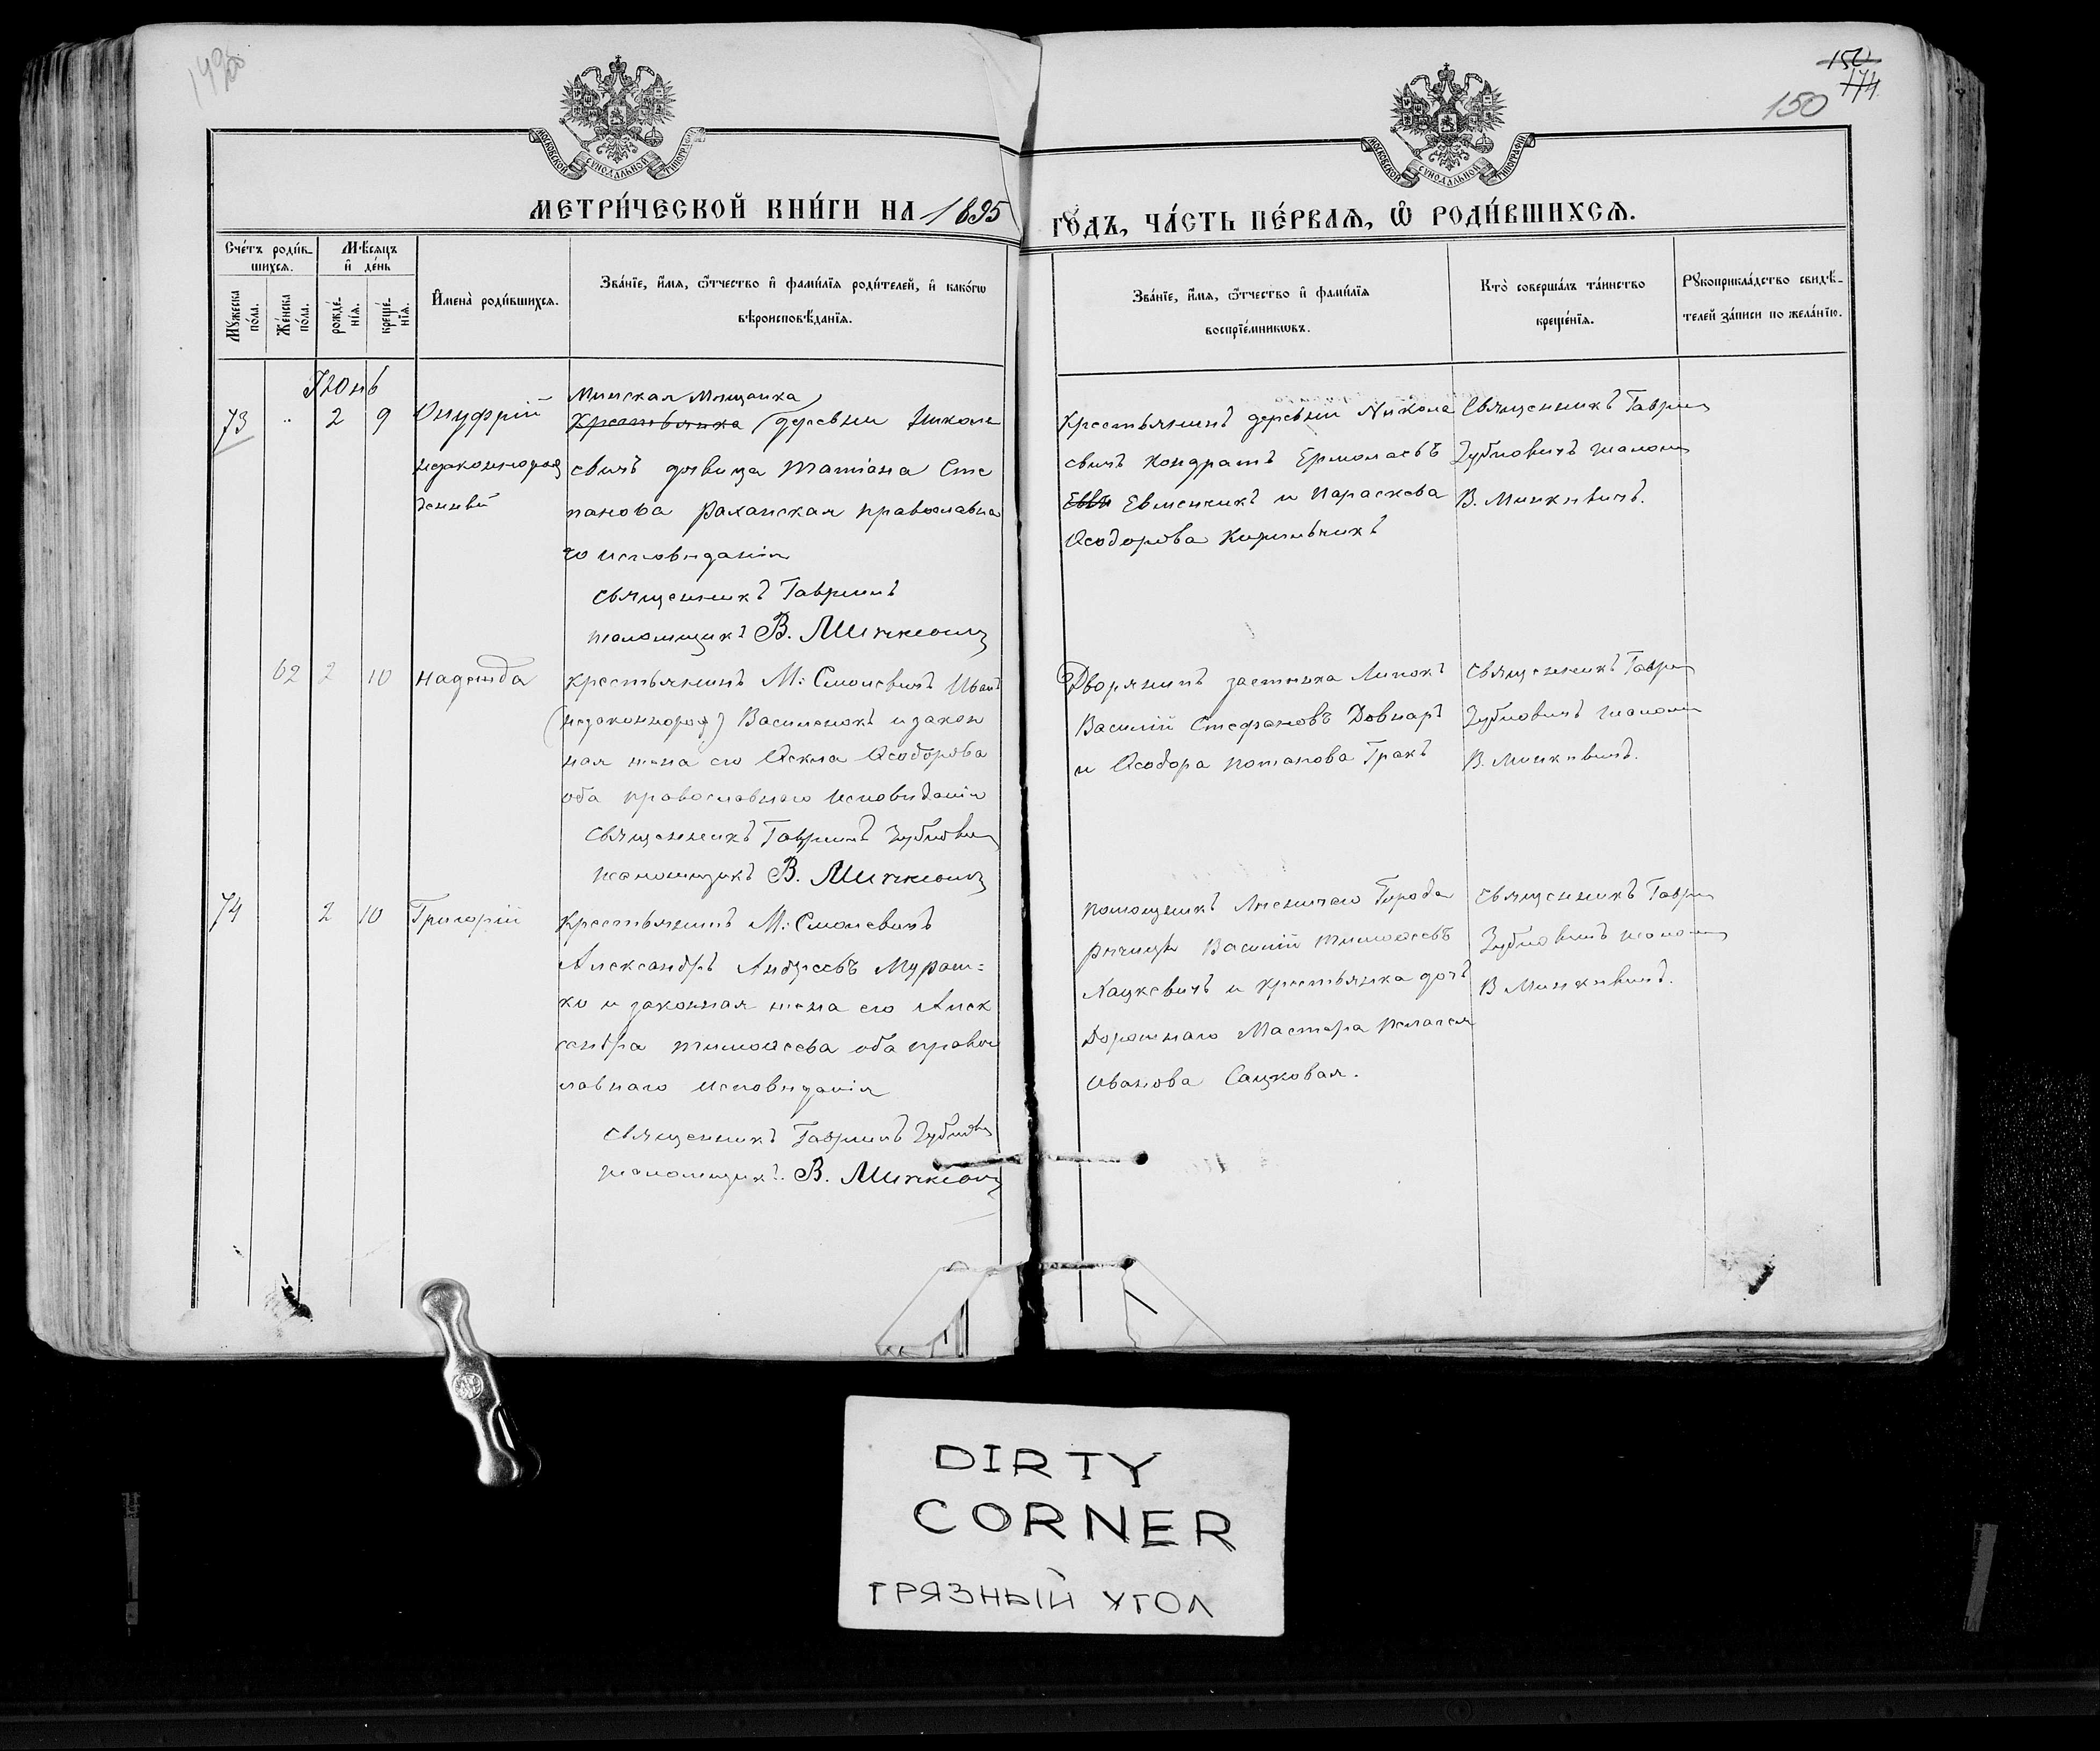 150
174
150
МОСКОВСКОЙ СѴНОДАЛЬНОЙ ТИПОГРАФІИ
МОСКОВСКОЙ СѴНОДАЛЬНОЙ ТИПОГРАФІИ
МЕТРИ́ЧЕСКОЙ КНИ́ГИ НА 1895
ГО́ДЪ, ЧА́СТЬ ПЕ́РВАЯ, Ѿ РОДИ́ВШИХСЯ.
Сче́тъ роди́в-
шихся.
Мѣ́сяцъ
и де́нь
Мꙋ́жеска по́ла.
Же́нска по́ла.
рожде́нїя.
креще́нїя.
И҆мена̀ роди́вшихся.
Зва́нїе, и҆́мя, ѻ҆́тчество и҆ фами́лїя роди́телей, и҆ како́гѡ
вѣроисповѣ́данїя.
Зва́нїе, и҆́мя, ѻ҆́тчество и҆ фами́лїя
воспрїе́мникѡвъ.
Кто̀ соверша́лъ та́инство
креще́нїя.
Рꙋкоприкла́дство свидѣ́-
телей за́писи по жела́нїю.
Іюнь
73 " 2 9 Онуфрій
незаконнорож
денный
Минская Мѣщанка
Крестьянка деревни Никола
евичъ дѣвица Татіана Сте
панова Раханская православна
го исповѣданія
Священникъ Гавріилъ
Псаломщикъ В. Минкевичъ
Крестьянинъ деревни Никола
евичъ Кондратъ Ермолаевъ
Евменчикъ и Параскева
Ѳеодорова
Священникъ Гаврі
Зубковичъ псалом
В. Минкевичъ.
62 2 10 Надежда
Крестьянинъ М: Смолевичъ Иванъ
(незаконнорож) Василенокъ и закон
ная жена его Ѳекла Ѳеодорова
оба православнаго исповѣданія
Священникъ Гавріилъ Зубкович
Псаломщикъ В. Минкевичъ
Дворянинъ застѣнка Липокъ
Василій Стефановъ Довнаръ
и Ѳеодора Потапова Гракъ
Священникъ Гаврі
Зубковичъ псалом
В. Минкевичъ.
74 2 10 Григорій
Крестьянинъ М: Смолевичъ
Александръ Андреевъ Мураш=
ко и законная жена его Алек
сандра Тимоѳеева оба правос
лавнаго исповѣданія
Священникъ Гавріилъ Зубкович
Псаломщикъ. В. Минкевичъ
Помощникъ Лѣсничаго Города
Рѣчицы Василій Тимоѳеевъ
Лацкевичъ и крестьянка дочь
Дорожнаго Мастера Пелагея
Иванова Сацковая.
Священникъ Гаврі
Зубковичъ псалом
В Минкевичъ.
DIRTY
CORNER
ГРЯЗНЫЙ УГОЛ